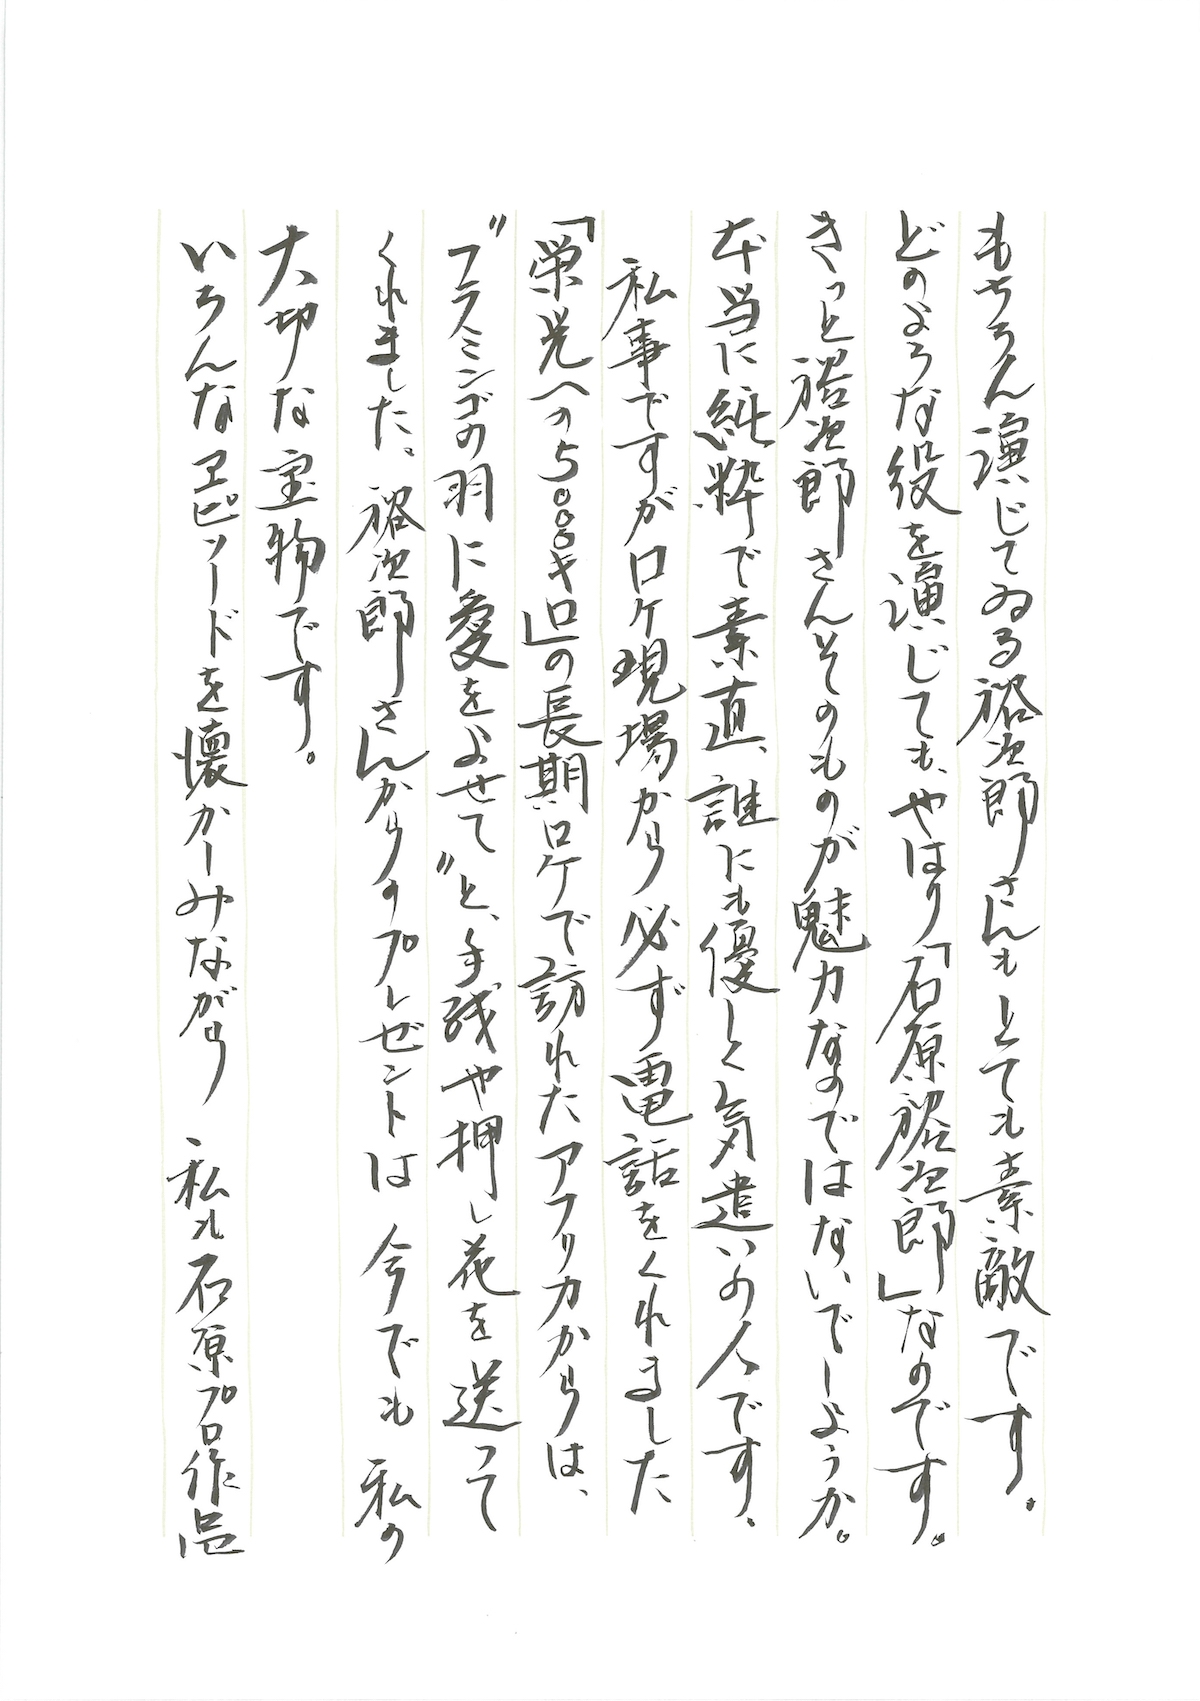 もちろん演じてゐる裕次郎さんもとても素敵です。
どのような役を演じても、やはり「石原裕次郎」なのです。
きっと裕次郎さんそのものが魅力なのではないでしょうか。
本当に純粋で素直、誰にも優しく気遣いの人です、
私事ですがロケ現場から必ず電話をくれました
「栄光への5000キロ」の長期ロケで訪れたアフリカからは、
〝フラミンゴの羽に愛をよせて〟と、手残や押し花を送って
くれました。裕次郎さんからのプレゼントは今でも私の
大切な宝物です。
いろんなエピソードを懐かしみながら 私も石原プロ作品